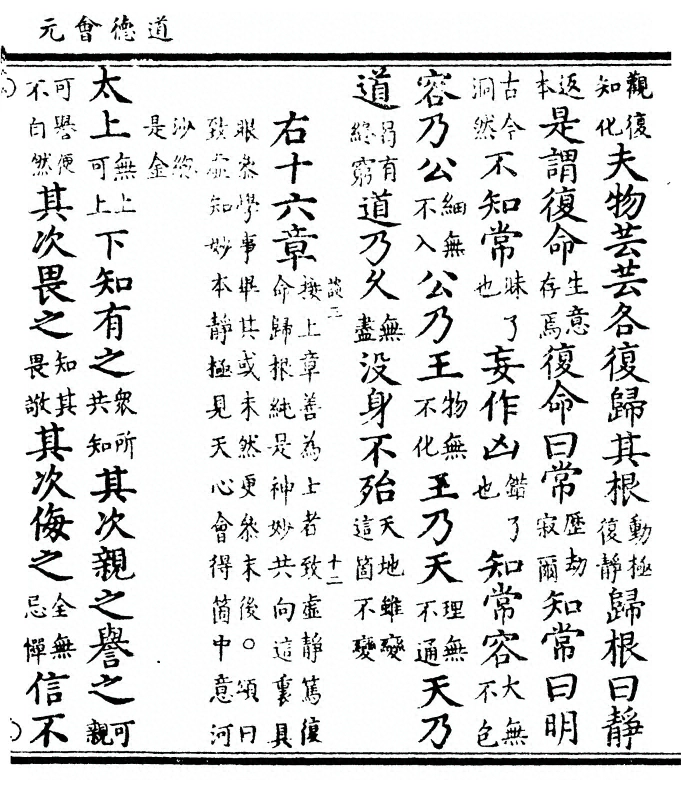 道德會元
觀復知化夫物芸芸各復歸其根動極復靜歸根曰靜
返本是謂復命生意存焉復命曰常歷劫寂爾知常曰明
古今洞然不知常昧了也妄作凶錯了也知常容大無不包
容乃公細無不入公乃王物無不化王乃天理無不通天乃
道曷有終窮道乃久無盡没身不殆天地雖變這箇不變
談三
十二
右十六章接上章善為上者致虛靜篤復命歸根純是神妙共向這裏具
眼參學事畢其或未然更參末後○頌曰
致虛知妙本靜極見天心會得箇中意河
沙總是金
太上無上可上下知有之衆所共知其次親之譽之可親
可譽便不自然其次畏之知其畏敬其次侮之全無忌憚信不